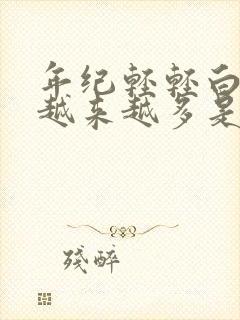 年纪轻轻白
越来越多是
残醉